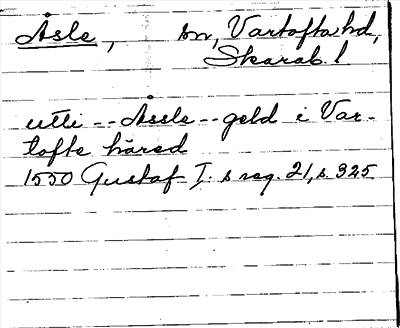 Åsle, sn, Vartofta hd,
Skarab. l
utti -- Åssle -- geld i Var-
tofte häred
1550 Gustaf I:s reg. 21, s. 325